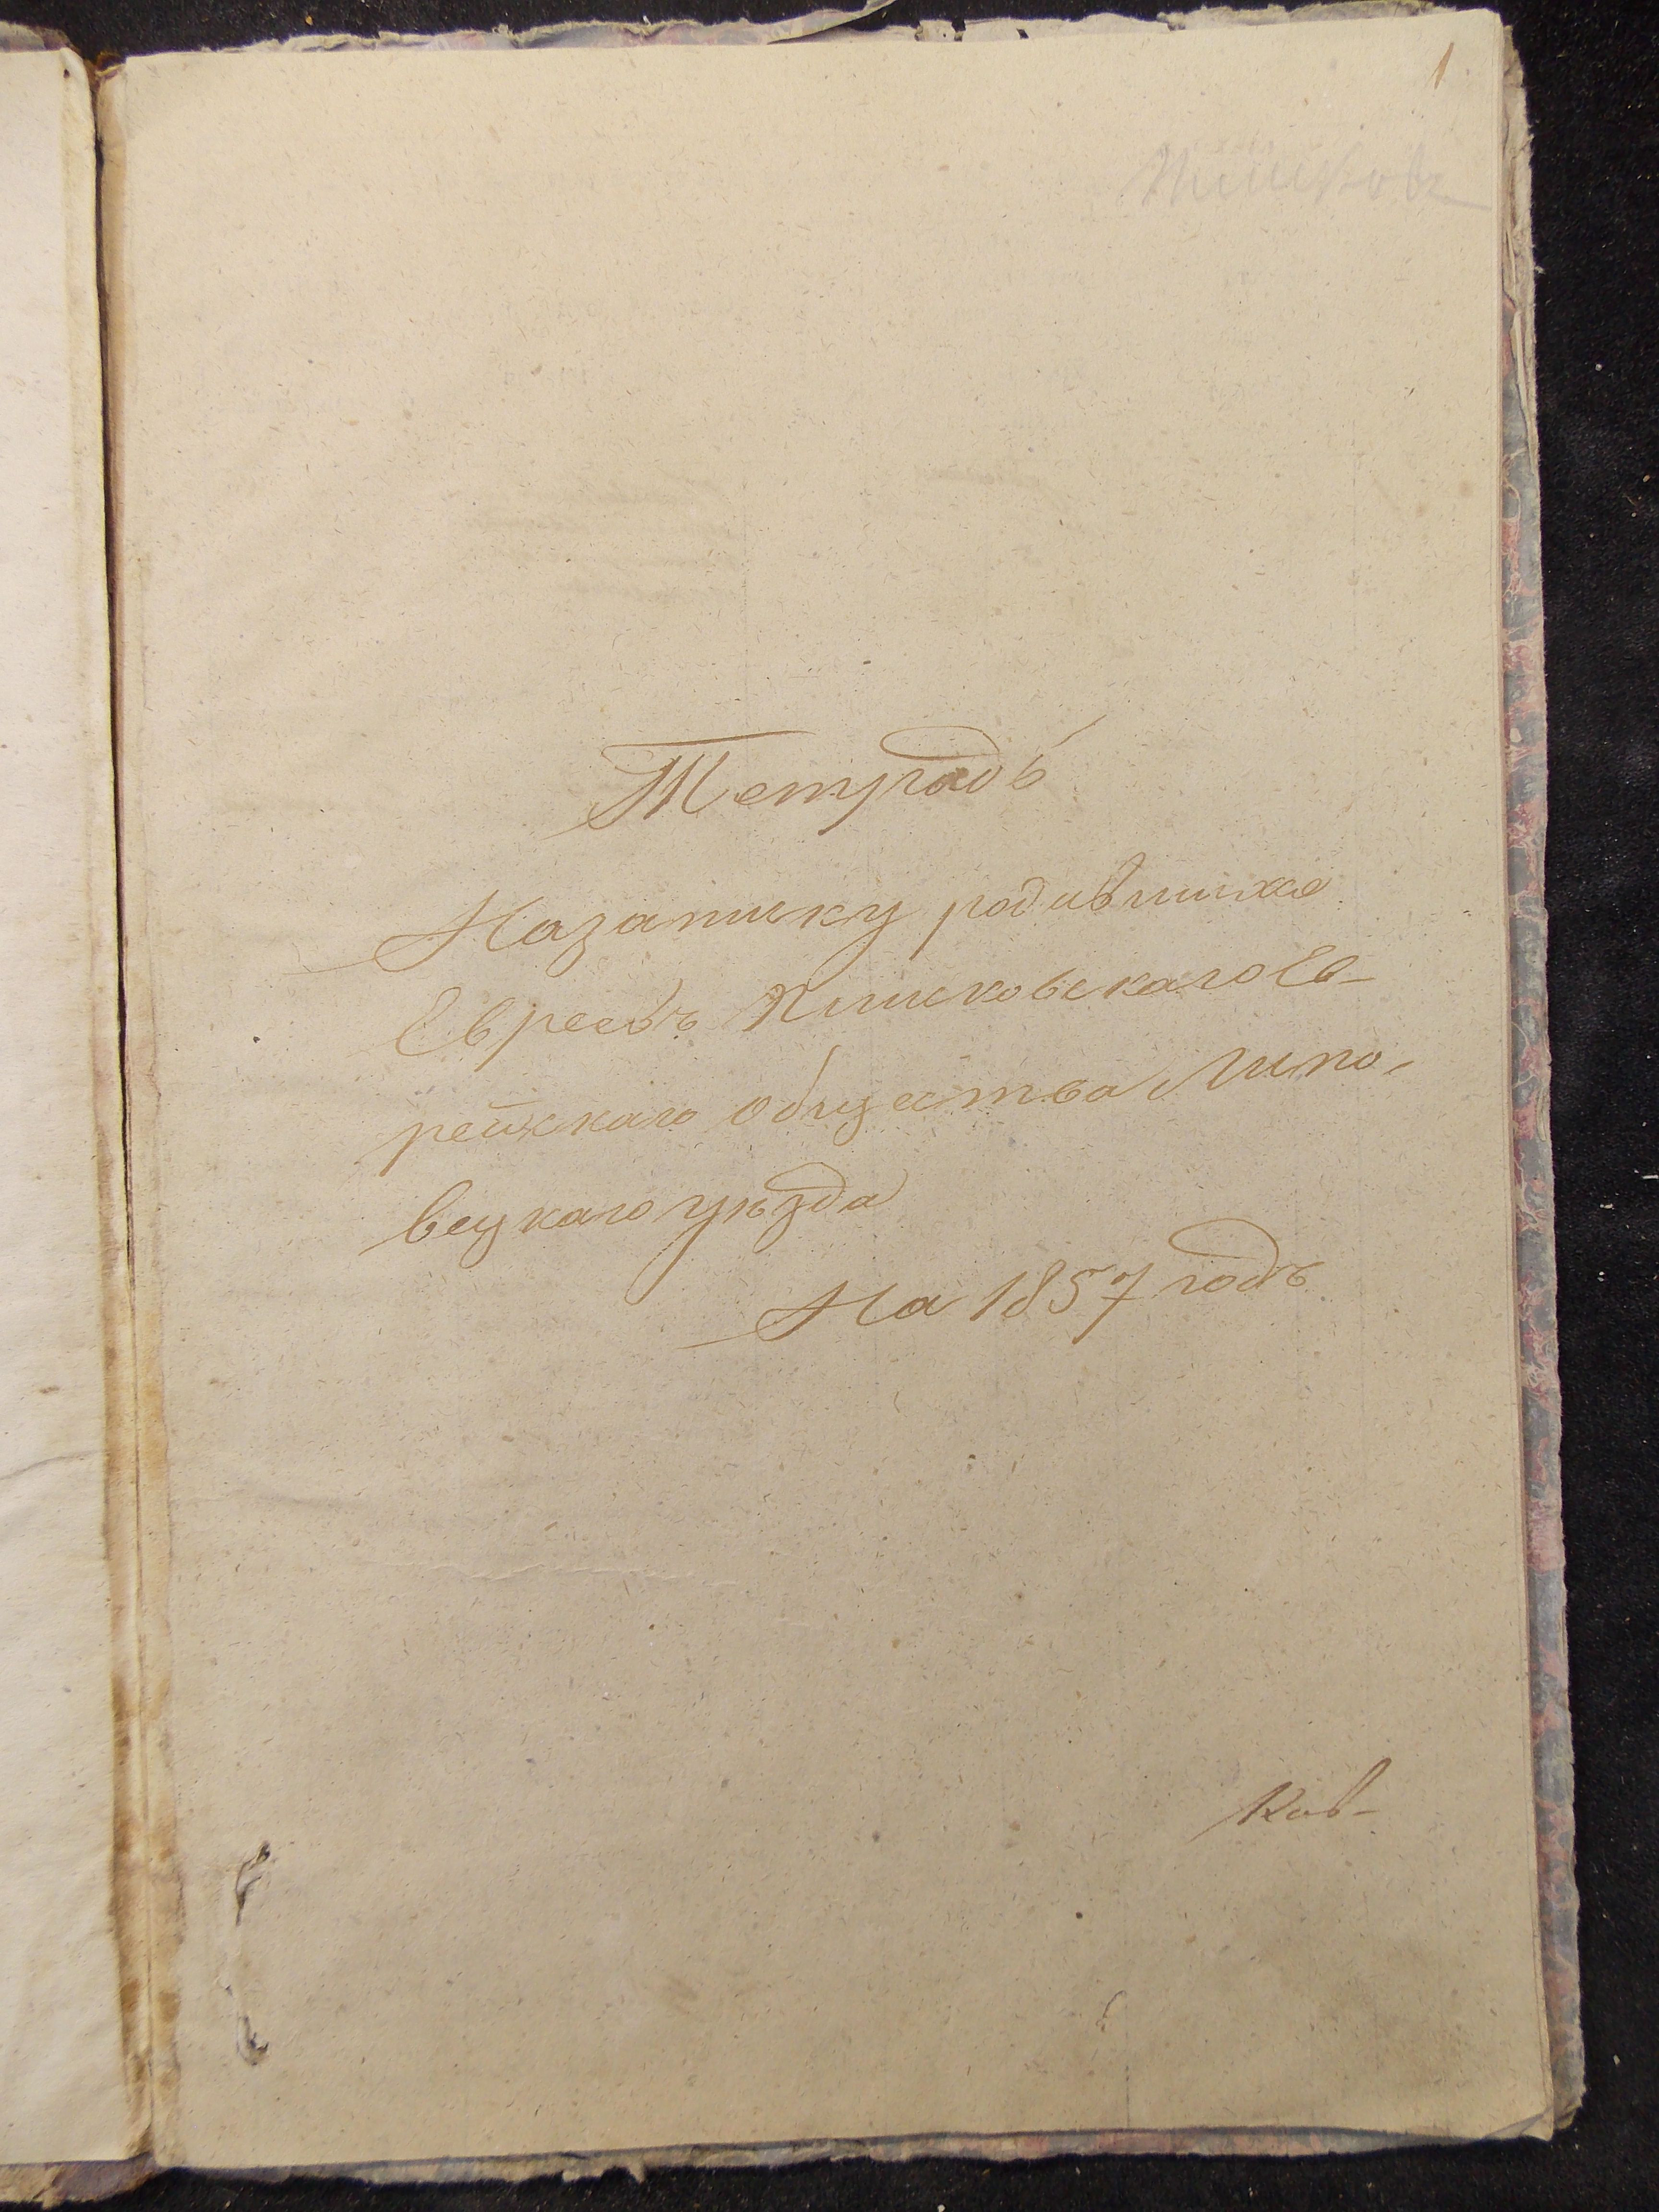 1
Тетрадь
На записку родившихся
Евреевъ Плисковскаго Ев-
рейскаго общества Липо-
вецкаго уѣзда
На 1857 годъ